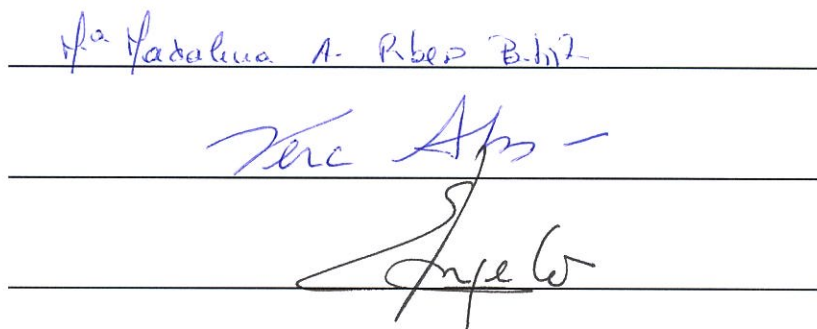 Mª Madalena A. Ribeiro
Vera
Angelo